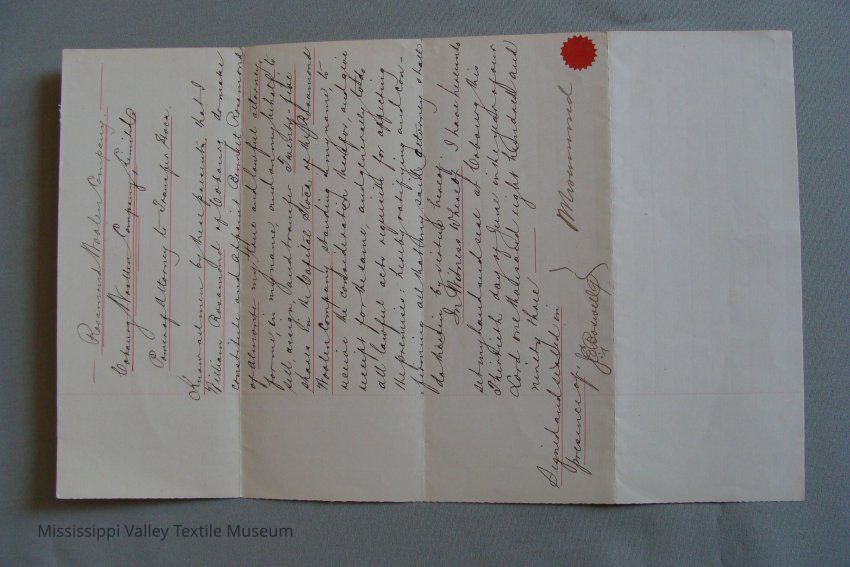 Rosamond Woolen Company.
Cobourg Woollen Company, Limited
Power of Attorney to Transfer Stock.
Know all men by these presents, that I
William Rosamond of Cobourg do make
constitute and appoint Bennett Rosamond
of Almonte my true and lawful attorney,
for me, in my name, and on my behalf to
sell, assign and transfer Twenty-five
shares in the Capital Stock of the Rosamond
Woolen Company standing in my name, to
receive the consideration therefor, and give
receipt for the same, and generally to do
all lawful acts requisite for effecting
the premises: hereby ratifying and con-
firming all that my said attorney shall
do therein by virtue hereof.
In Witness Whereof I have hereunto
set my hand and seal at Cobourg this
Thirtieth day of June in the year of our
Lord one thousand eight hundred and
ninety three
Signed and sealed in
presence of
Wm Rosamond
Mississippi Valley Textile Museum